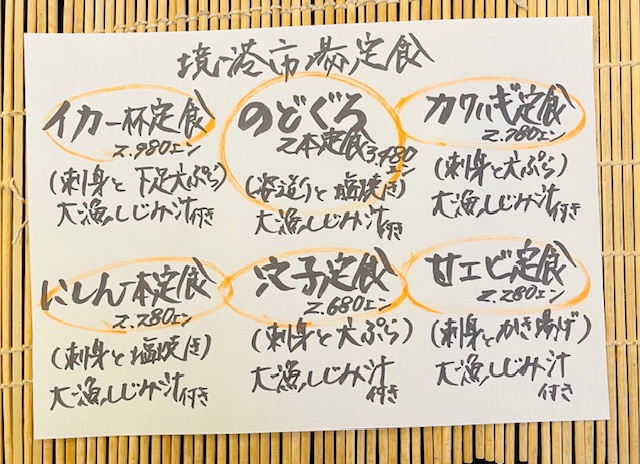 境港市場定食
イカ一杯定食
2.980エン
(刺身と下足天ぷら)
大漁しじみ汁付き
のどぐろ
2本定食3,480エン
(姿造りと塩焼き)
大漁しじみ汁付き
カワハギ定食
2.780エン
(刺身と天ぷら)
大漁しじみ汁付き
にしん一本定食
2.280エン
(刺身と塩焼き)
大漁しじみ汁付き
穴子定食
2.680エン
(刺身と天ぷら)
大漁しじみ汁
付き
甘エビ定食
2.280エン
(刺身とかき揚げ)
大漁しじみ汁
付き